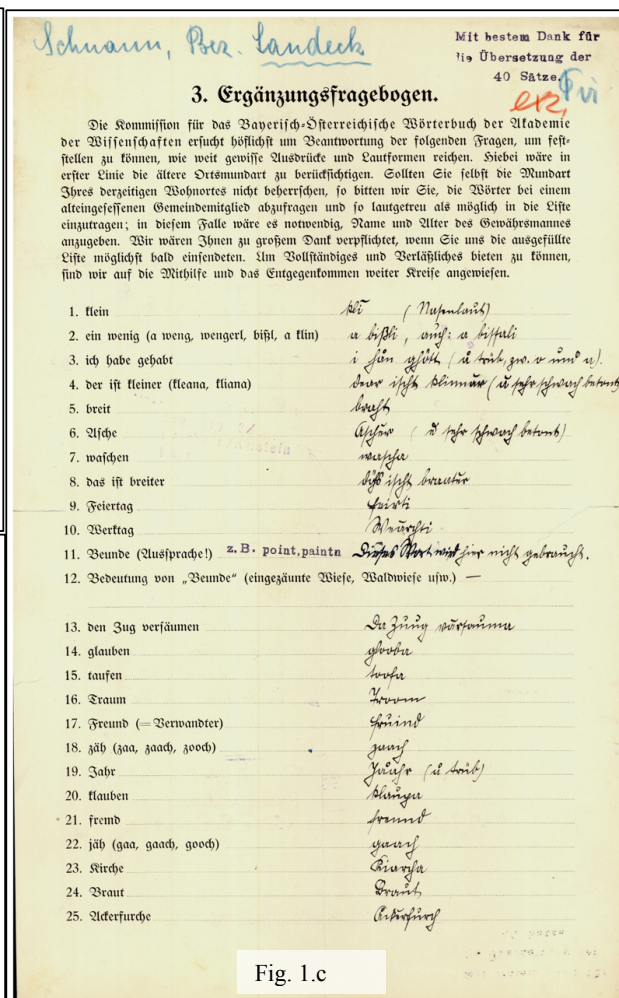 Schnann, Bez. Landeck
Mit bestem Dank für
die Übersetzung der
40 Sätze.
3. Ergänzungsfragebogen.
Die Kommission für das Bayerisch-Österreichische Wörterbuch der Akademie
der Wissenschaften ersucht höflichst um Beantwortung der folgenden Fragen, um fest-
stellen zu können, wie weit gewisse Ausdrücke und Lautformen reichen. Hiebei wäre in
erster Linie die ältere Ortsmundart zu berücksichtigen. Sollten Sie selbst die Mundart
Ihres derzeitigen Wohnortes nicht beherrschen, so bitten wir Sie, die Wörter bei einem
alteingesessenen Gemeindemitglied abzufragen und so lautgetreu als möglich in die Liste
einzutragen; in diesem Falle wäre es notwendig, Name und Alter des Gewährsmannes
anzugeben. Wir wären Ihnen zu großem Dank verpflichtet, wenn Sie uns die ausgefüllte
Liste möglichst bald einsendeten. Um Vollständiges und Verläßliches bieten zu können,
sind wir auf die Mithilfe und das Entgegenkommen weiter Kreise angewiesen.
1. klein klī (Nasenlaut)
2. ein wenig (a weng, wengerl, bißl, a klin) a bißli, auch: a bissali
3. ich habe gehabt i hån ghått (å trüb, zw. o und a).
4. der ist kleiner (kleana, kliana) dear ischt klinnar (å sehr schwach betont)
5. breit braht
6. Asche (å sehr schwach betont)
7. waschen wascha
8. das ist breiter ischt
9. Feiertag Feirti
10. Werktag Wearchti
11. Beunde (Aussprache!) z.B. point,paintn Dieses Wort wird hier nicht gebraucht.
12. Bedeutung von „Beunde“ (eingezäunte Wiese, Waldwiese usw.) —
13. den Zug versäumen Da Zuug varsauma
14. glauben glooba
15. taufen toofa
16. Traum Troom
17. Freund (= Verwandter) Fruind
18. zäh (zaa, zaach, zooch) zaach
19. Jahr Jååhr (å trüb)
20. klauben klaupa
21. fremd fremd
22. jäh (gaa, gaach, gooch) gaach
23. Kirche Kiarcha
24. Braut Braut
25. Ackerfurche Ackerfurch
Fig. 1.c